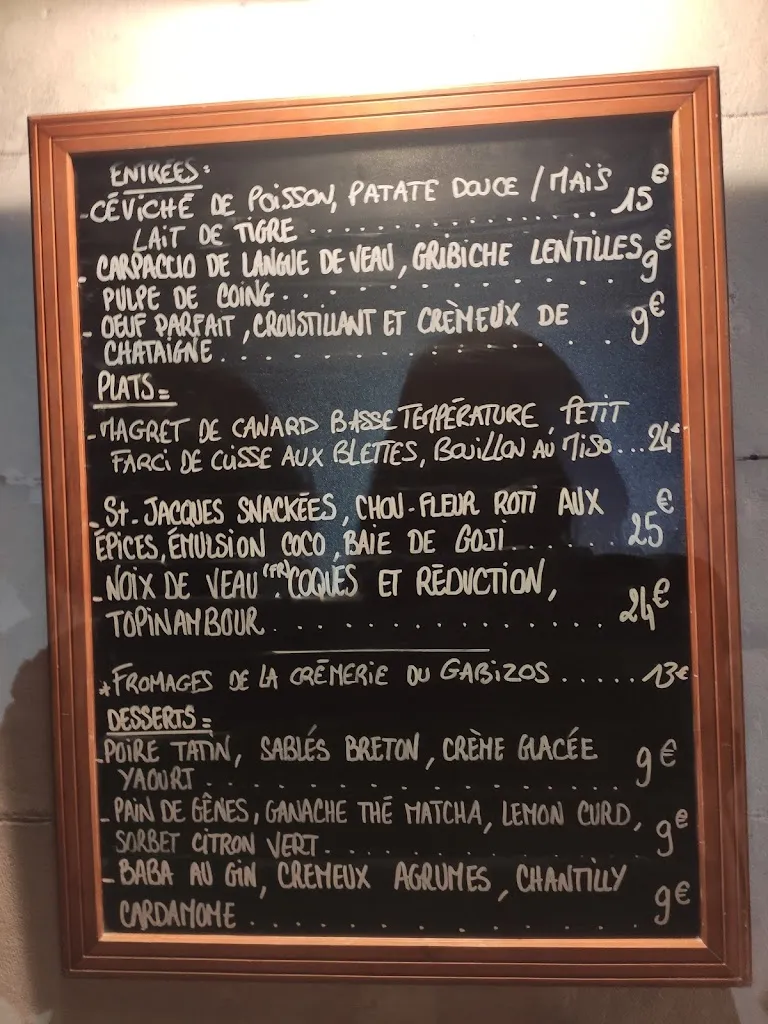 ENTRÉES:
-CÉVICHÉ DE POISSON, PATATE DOUCE / MAÏS
LAIT DE TIGRE .................. 15€
- CARPACCIO DE LANGUE DE VEAU, GRIBICHE LENTILLES
PULPE DE COING.................. 9€
- OEUF PARFAIT, CROUSTILLANT ET CRÈMEUX DE
CHATAIGNE.................. 9€
PLATS=
-MAGRET DE CANARD BASSE TEMPÉRATURE, PETIT
FARCI DE CUISSE AUX BLETTES, BOUILLON AU MISO...24€
- St-JACQUES SNACKÉES, CHOU-FLEUR ROTI AUX
ÉPICES, ÉMULSION COCO, BAIE DE GOJI....... 25€
-NOIX DE VEAU (FR). COQUES ET RÉDUCTION,
TOPINAMBOUR.................. 24€
*FROMAGES DE LA CRÈMERIE DU GABIZOS.....13€
DESSERTS=
-POIRE TATIN, SABLÉS BRETON, CRÈME GLACÉE
YAOURT .................. 9€
- PAIN DE GÊNES, GANACHE THÉ MATCHA, LEMON CURD,
SORBET CITRON VERT.................. 9€
- BABA AU GIN, CREMEUX AGRUMES, CHANTILLY
CARDAMOME.................. 9€